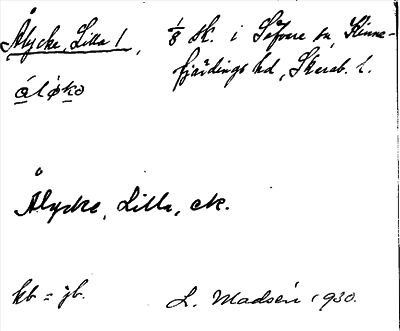 Ålycke, Lilla 1, 1/8 sk. i Säfvare sn, Kinne-
fjärdings hd, Skarab. l.
Ålycke, Lilla, ck.
kb = jb. L. Madsén 1930.